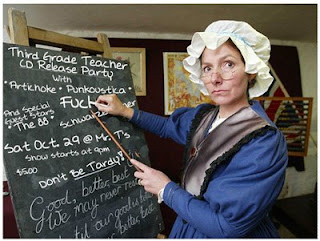 Third Grade Teacher
CD Release Party
With
• Artichoke • Punkoustica •
And Special
guest stars
FUCK
The 88
Sat Oct. 29 @ Mr. T's
Show starts at 9pm
$5.00
Don't Be Tardy!
Good, better, best
We may never res
til our good is
better, best